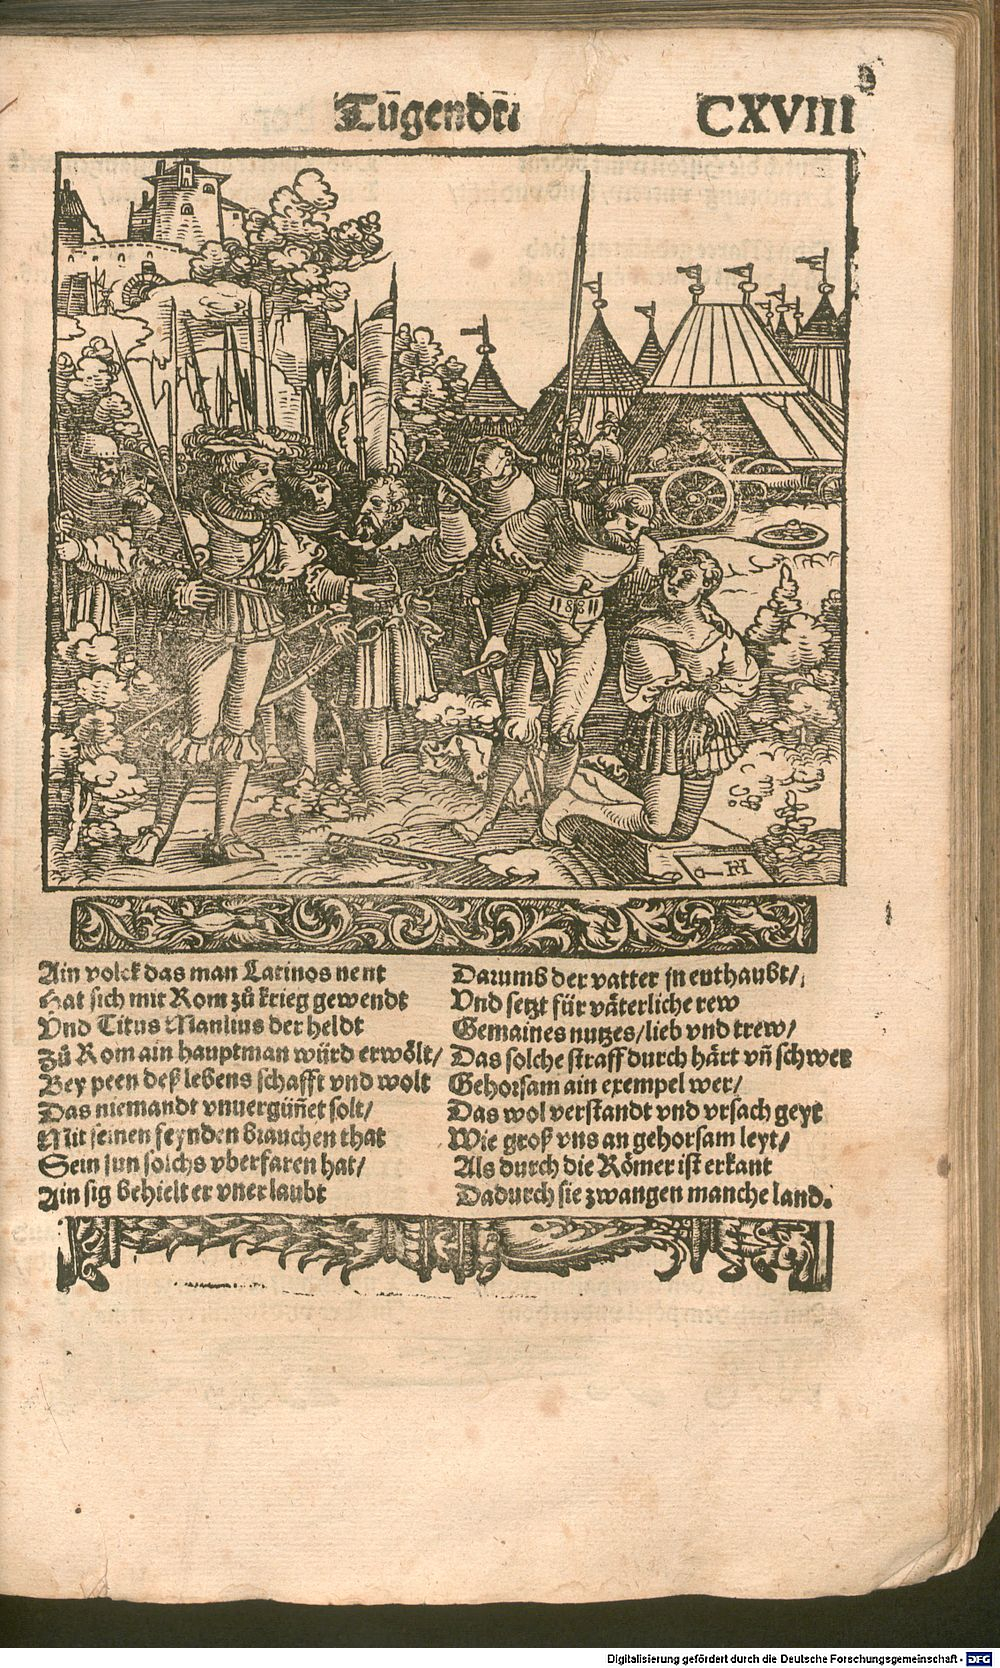 Tũgendẽ
CXVIII
H
Ain volck das man Latinos nent
Hat sich mit Rom zů krieg gewendt
Vnd Titus Manlius der heldt
Zů Rom ain hauptman würd erwölt/
Bey peen deß lebens schafft vnd wolt
Das niemandt vnuergüñet solt/
Mit seinen feynden brauchen that
Sein sun solchs vberfaren hat/
Ain sig behielt er vnerlaubt
Darumb der vatter jn enthaubt/
Vnd setzt für väterliche rew
Gemaines nutzes/lieb vnd trew/
Das solche straff durch härt vñ schwer
Gehorsam ain exempel wer/
Das wol verstandt vnd vrsach geyt
Wie groß vns an gehorsam leyt/
Als durch die Römer ist erkant
Dadurch sie zwangen manche land.
Digitalisierung gefördert durch die Deutsche Forschungsgemeinschaft - DFG